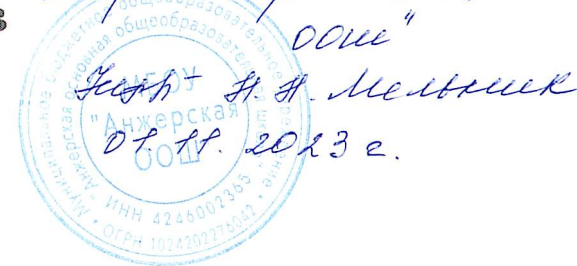 ООШ"
Н. Н. Мельник
01.11.2023 г.
Муниципальное бюджетное общеобразовательное учреждение
"Анжерская основная общеобразовательная школа"
МБОУ
"Анжерская
ООШ"
ИНН 4246002365
ОГРН 1024202276042